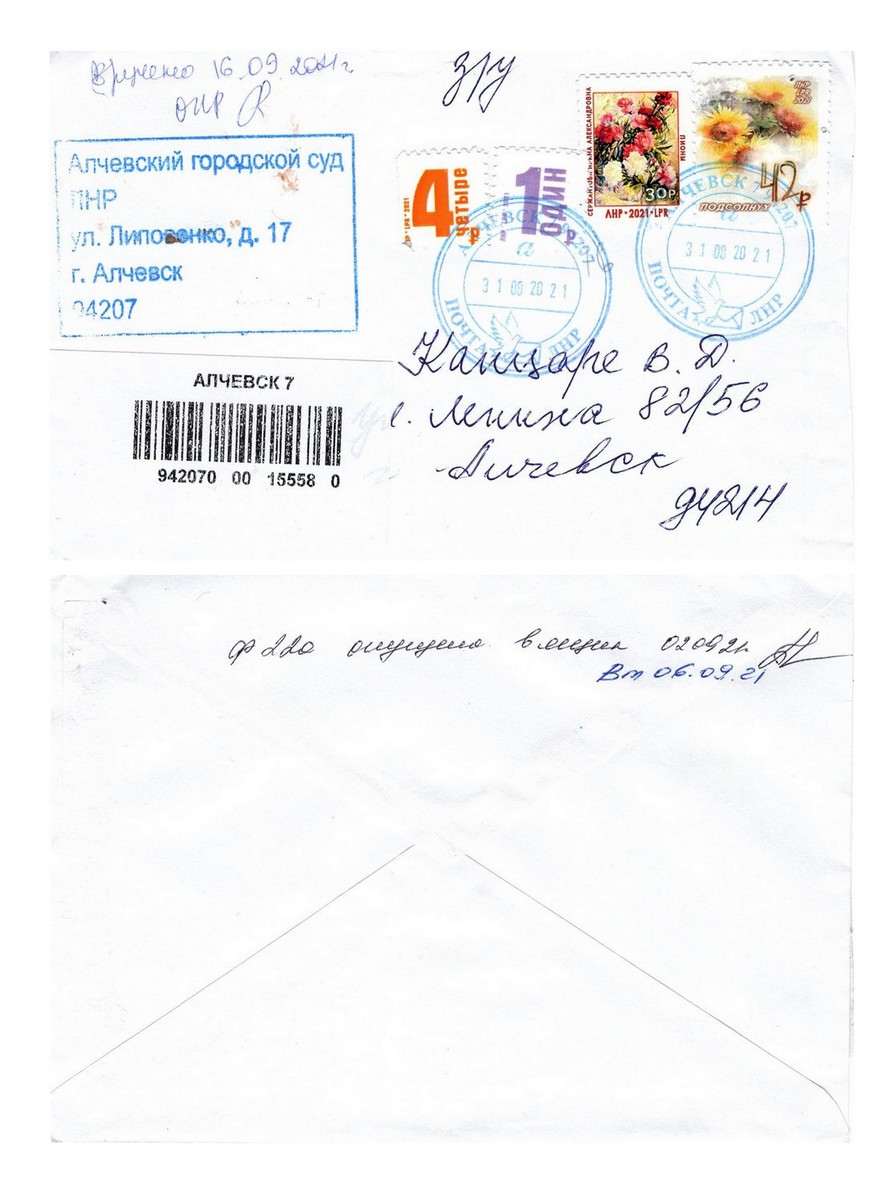 Вручено 16.09.2021г
ОПР
зру
Алчевский городской суд
ЛНР
ул. Липовенко, д. 17
г. Алчевск
94207
4
четыре
1
один
₽
СЕРЖАНТОВА ТАТЬЯНА АЛЕКСАНДРОВНА
ПИОНЫ
30₽
ЛНР • 2021 • LPR
ЛНР
LPR
2021
42₽
ПОДСОЛНУХ
АЛЧЕВСК 7 94207
а
31 08 20 21
ПОЧТА ЛНР
АЛЧЕВСК 7 94207
а
31 08 20 21
ПОЧТА ЛНР
АЛЧЕВСК 7
942070 00 15558 0
Канцаре В. Д.
Ленина 82/56
Алчевск
94214
ф 22о опущено в ящик 020921
Вт 06.09.21